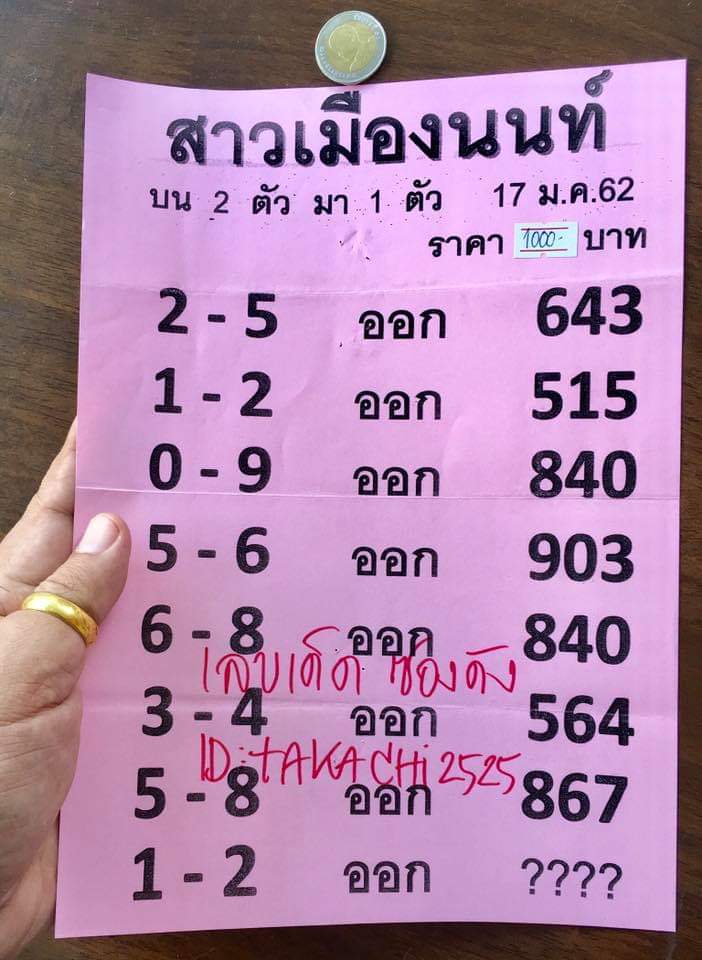 สาวเมืองนนท์
บน 2 ตัว มา 1 ตัว 17 ม.ค.62
ราคา 1000.- บาท
2 - 5 ออก 643
1 - 2 ออก 515
0 - 9 ออก 840
5 - 6 ออก 903
6 - 8 ออก 840
เลขเด็ด ซองดัง
3 - 4 ออก 564
ID: TAKACHi2525
5 - 8 ออก 867
1 - 2 ออก ????